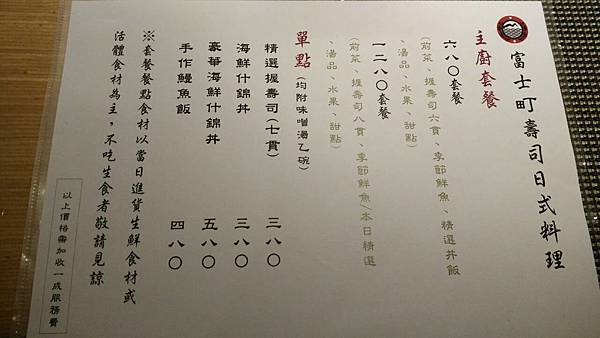 富士町壽司日式料理
主廚套餐
六八〇套餐
(前菜、握壽司六貫、季節鮮魚、精選丼飯
、湯品、水果、甜點)
一二八〇套餐
(前菜、握壽司八貫、季節鮮魚/本日精選
、湯品、水果、甜點)
單點(均附味噌湯乙碗)
精選握壽司(七貫) 三八〇
海鮮什錦丼 三八〇
豪華海鮮什錦丼 五八〇
手作鰻魚飯 四八〇
※套餐餐點食材以當日進貨生鮮食材或
活體食材為主,不吃生食者敬請見諒
以上價格需加收一成服務費